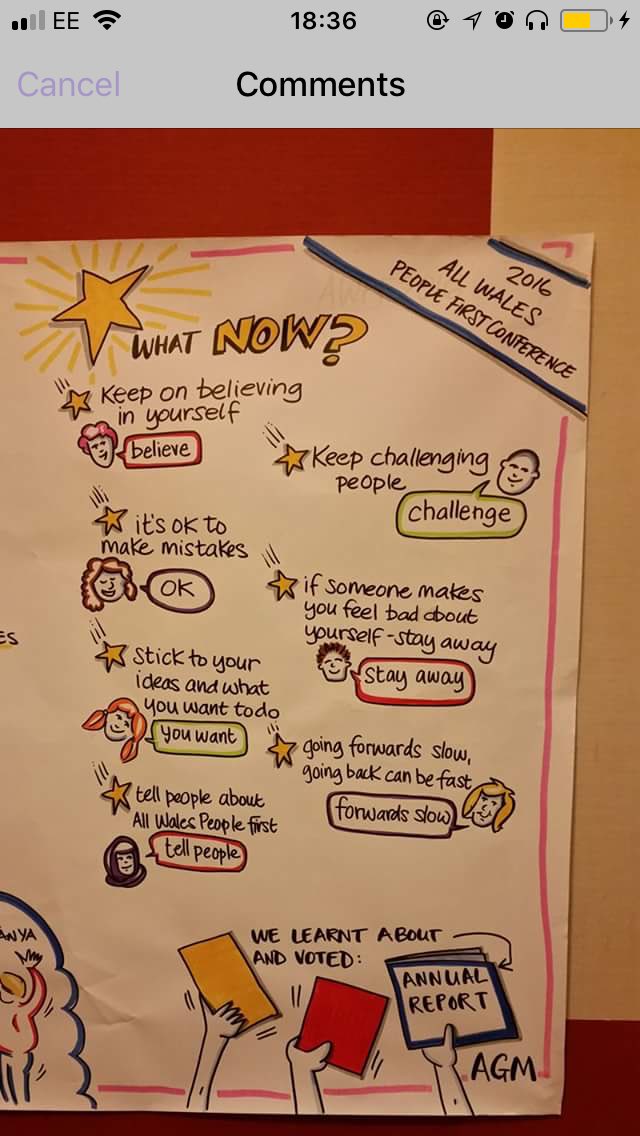 EE
18:36
Cancel
Comments
2016
ALL WALES
PEOPLE FIRST CONFERENCE
WHAT NOW?
Keep on believing
in yourself
believe
Keep challenging
people
challenge
it's OK to
make mistakes
OK
if someone makes
you feel bad about
yourself - stay away
stay away
Stick to your
ideas and what
you want to do
you want
going forwards slow,
going back can be fast
forwards slow
tell people about
All Wales People first
tell people
WE LEARNT ABOUT
AND VOTED:
ANNUAL
REPORT
AGM